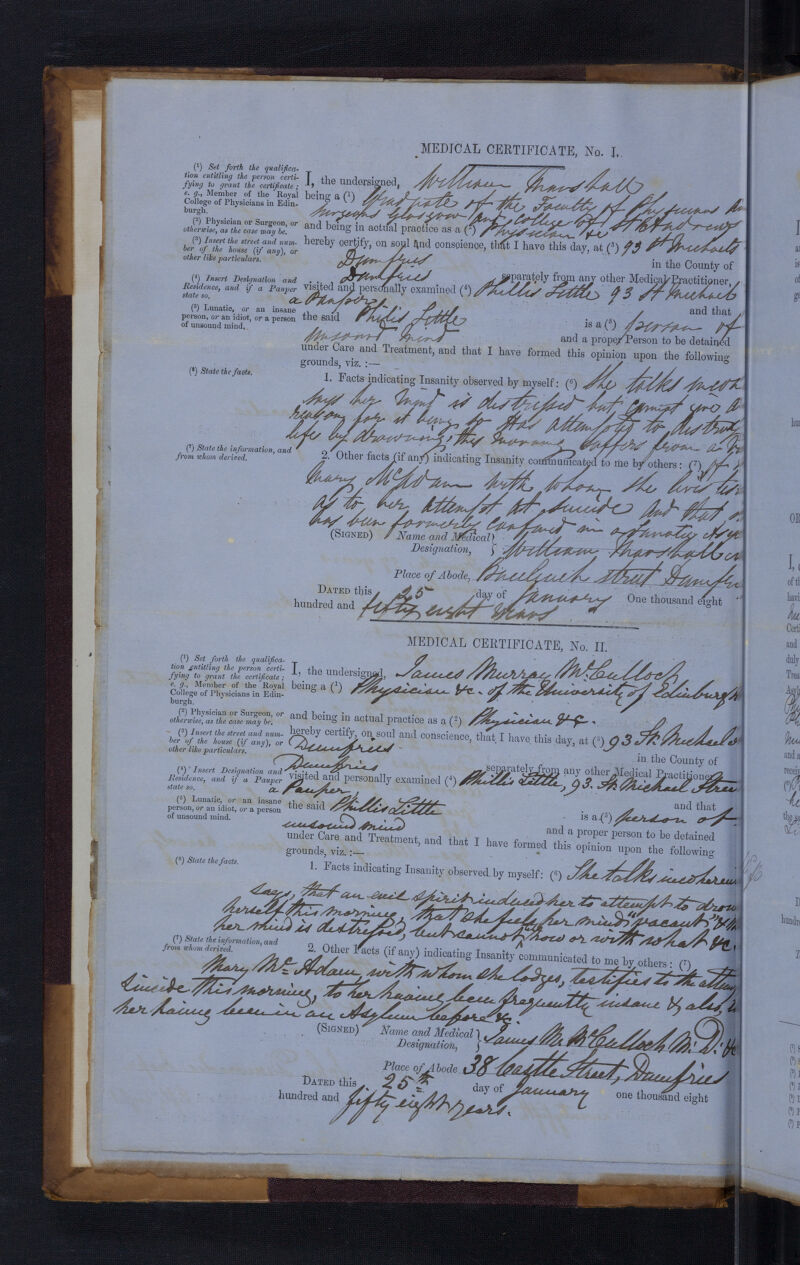 MEDICAL CERTIFICATE, No. I.
(1) Set forth the qualifica-
tion entitling the person certi-
fying to grant the certificate;
e. g., Member of the Royal
College of Physicians in Edin-
burgh.
(2) Physician or Surgeon, or
otherwise, as the case may be.
(3) Insert the street and num-
ber of the house (if any), or
other like particulars.
(4) Insert Designation and
Residence, and if a Pauper
state so.
(5) Lunatic, or an insane
person, or an idiot, or a person
of unsound mind.
(6) State the facts.
(7) State the information, and
from whom derived.
I, the undersigned, William Marshall
being a (1) of the Faculty of Physicians
Surgeons Glasgow and of St Andrews
and being in actual practice as a (2) Physician &c
hereby certify, on soul and conscience, that I have this day, at (3) 93 St Michaels
Dumfries in the County of
Dumfries separately from any other Medical Practitioner,
visited and personally examined (4) Phillis Little 93 St Michael
a Pauper and that
the said Phillis Little is a (5) person of
unsound mind and a proper Person to be detained
under Care and Treatment, and that I have formed this opinion upon the following
grounds, viz. :—
1. Facts indicating Insanity observed by myself: (6) She talks
says her mind is distressed but cannot give a
reason for it being so Has attempted to destroy
life by drowning this morning suffers from a
2. Other facts (if any) indicating Insanity communicated to me by others: (7)
Mary McAdam with whom she lives
as to her attempt at suicide And that
has been formerly confined in a Lunatic
(SIGNED) Name and Medical
Designation, } William Marshall
Place of Abode, Buccleuch Street Dumfries
DATED this 25 day of January One thousand eight
hundred and fifty eight years
MEDICAL CERTIFICATE, No. II.
(1) Set forth the qualifica-
tion entitling the person certi-
fying to grant the certificate;
e. g., Member of the Royal
College of Physicians in Edin-
burgh.
(2) Physician or Surgeon, or
otherwise, as the case may be.
(3) Insert the street and num-
ber of the house (if any), or
other like particulars.
(4) Insert Designation and
Residence, and if a Pauper
state so.
(5) Lunatic, or an insane
person, or an idiot, or a person
of unsound mind.
(6) State the facts.
(7) State the information, and
from whom derived.
I, the undersigned, James Murray McCulloch
being a (1) Physician &c. of the University of Edinburgh
and being in actual practice as a (2) Physician &c.
hereby certify, on soul and conscience, that I have this day, at (3) 93 St. Michael
Dumfries in the County of
Dumfries separately from any other Medical Practitioner
visited and personally examined (4) Phillis Little, 93. St. Michael Street
a Pauper, and that
the said Phillis Little is a (5) person of
unsound mind and a proper person to be detained
under Care and Treatment, and that I have formed this opinion upon the following
grounds, viz. :—
1. Facts indicating Insanity observed by myself: (6) She talks incoherently
says, that an evil spirit induced her to attempt to drown
herself this morning, that she feels her mind "vacant" &
her mind is distressed, but cannot how or with what &c.
2. Other Facts (if any) indicating Insanity communicated to me by others: (7)
Mary Mc Adam, with whom she lodges, testifies to the
Suicide this morning, to her having been frequently insane & also
her having been in an Asylum before &c.
(SIGNED) Name and Medical
Designation, } James M. McCulloch M.D. &c
Place of Abode 38 Castle Street, Dumfries
DATED this 25th day of January one thousand eight
hundred and fifty eight years.